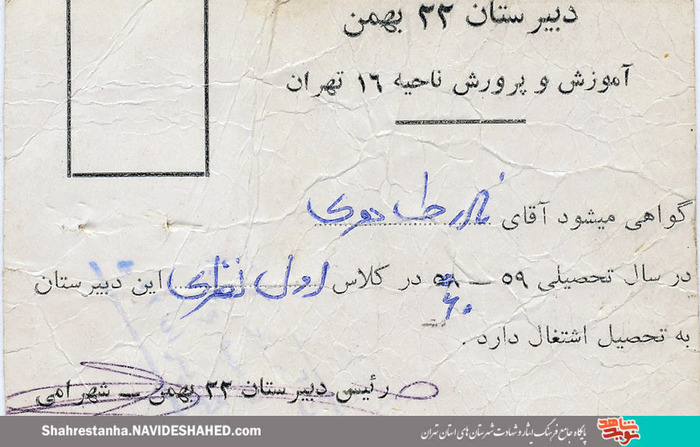 دبیرستان ۲۲ بهمن
آموزش و پرورش ناحیه ۱۶ تهران
گواهی میشود آقای
در سال تحصیلی ۵۹ – ۵۸ در کلاس اول نظری این دبیرستان
۶۰
به تحصیل اشتغال دارد .
رئیس دبیرستان ۲۲ بهمن – شهرامی
Shahrestanha.NAVIDESHAHED.com
پایگاه جامع فرهنگ ایثار و شهادت شهرستان های استان تهران
نوید شاهد